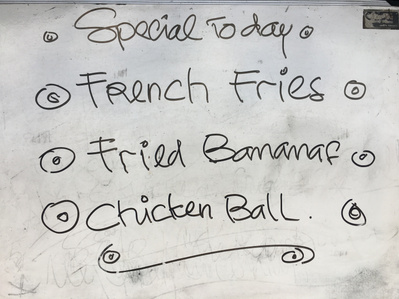 Special Today
French Fries
Fried Bananas
Chicken Ball.